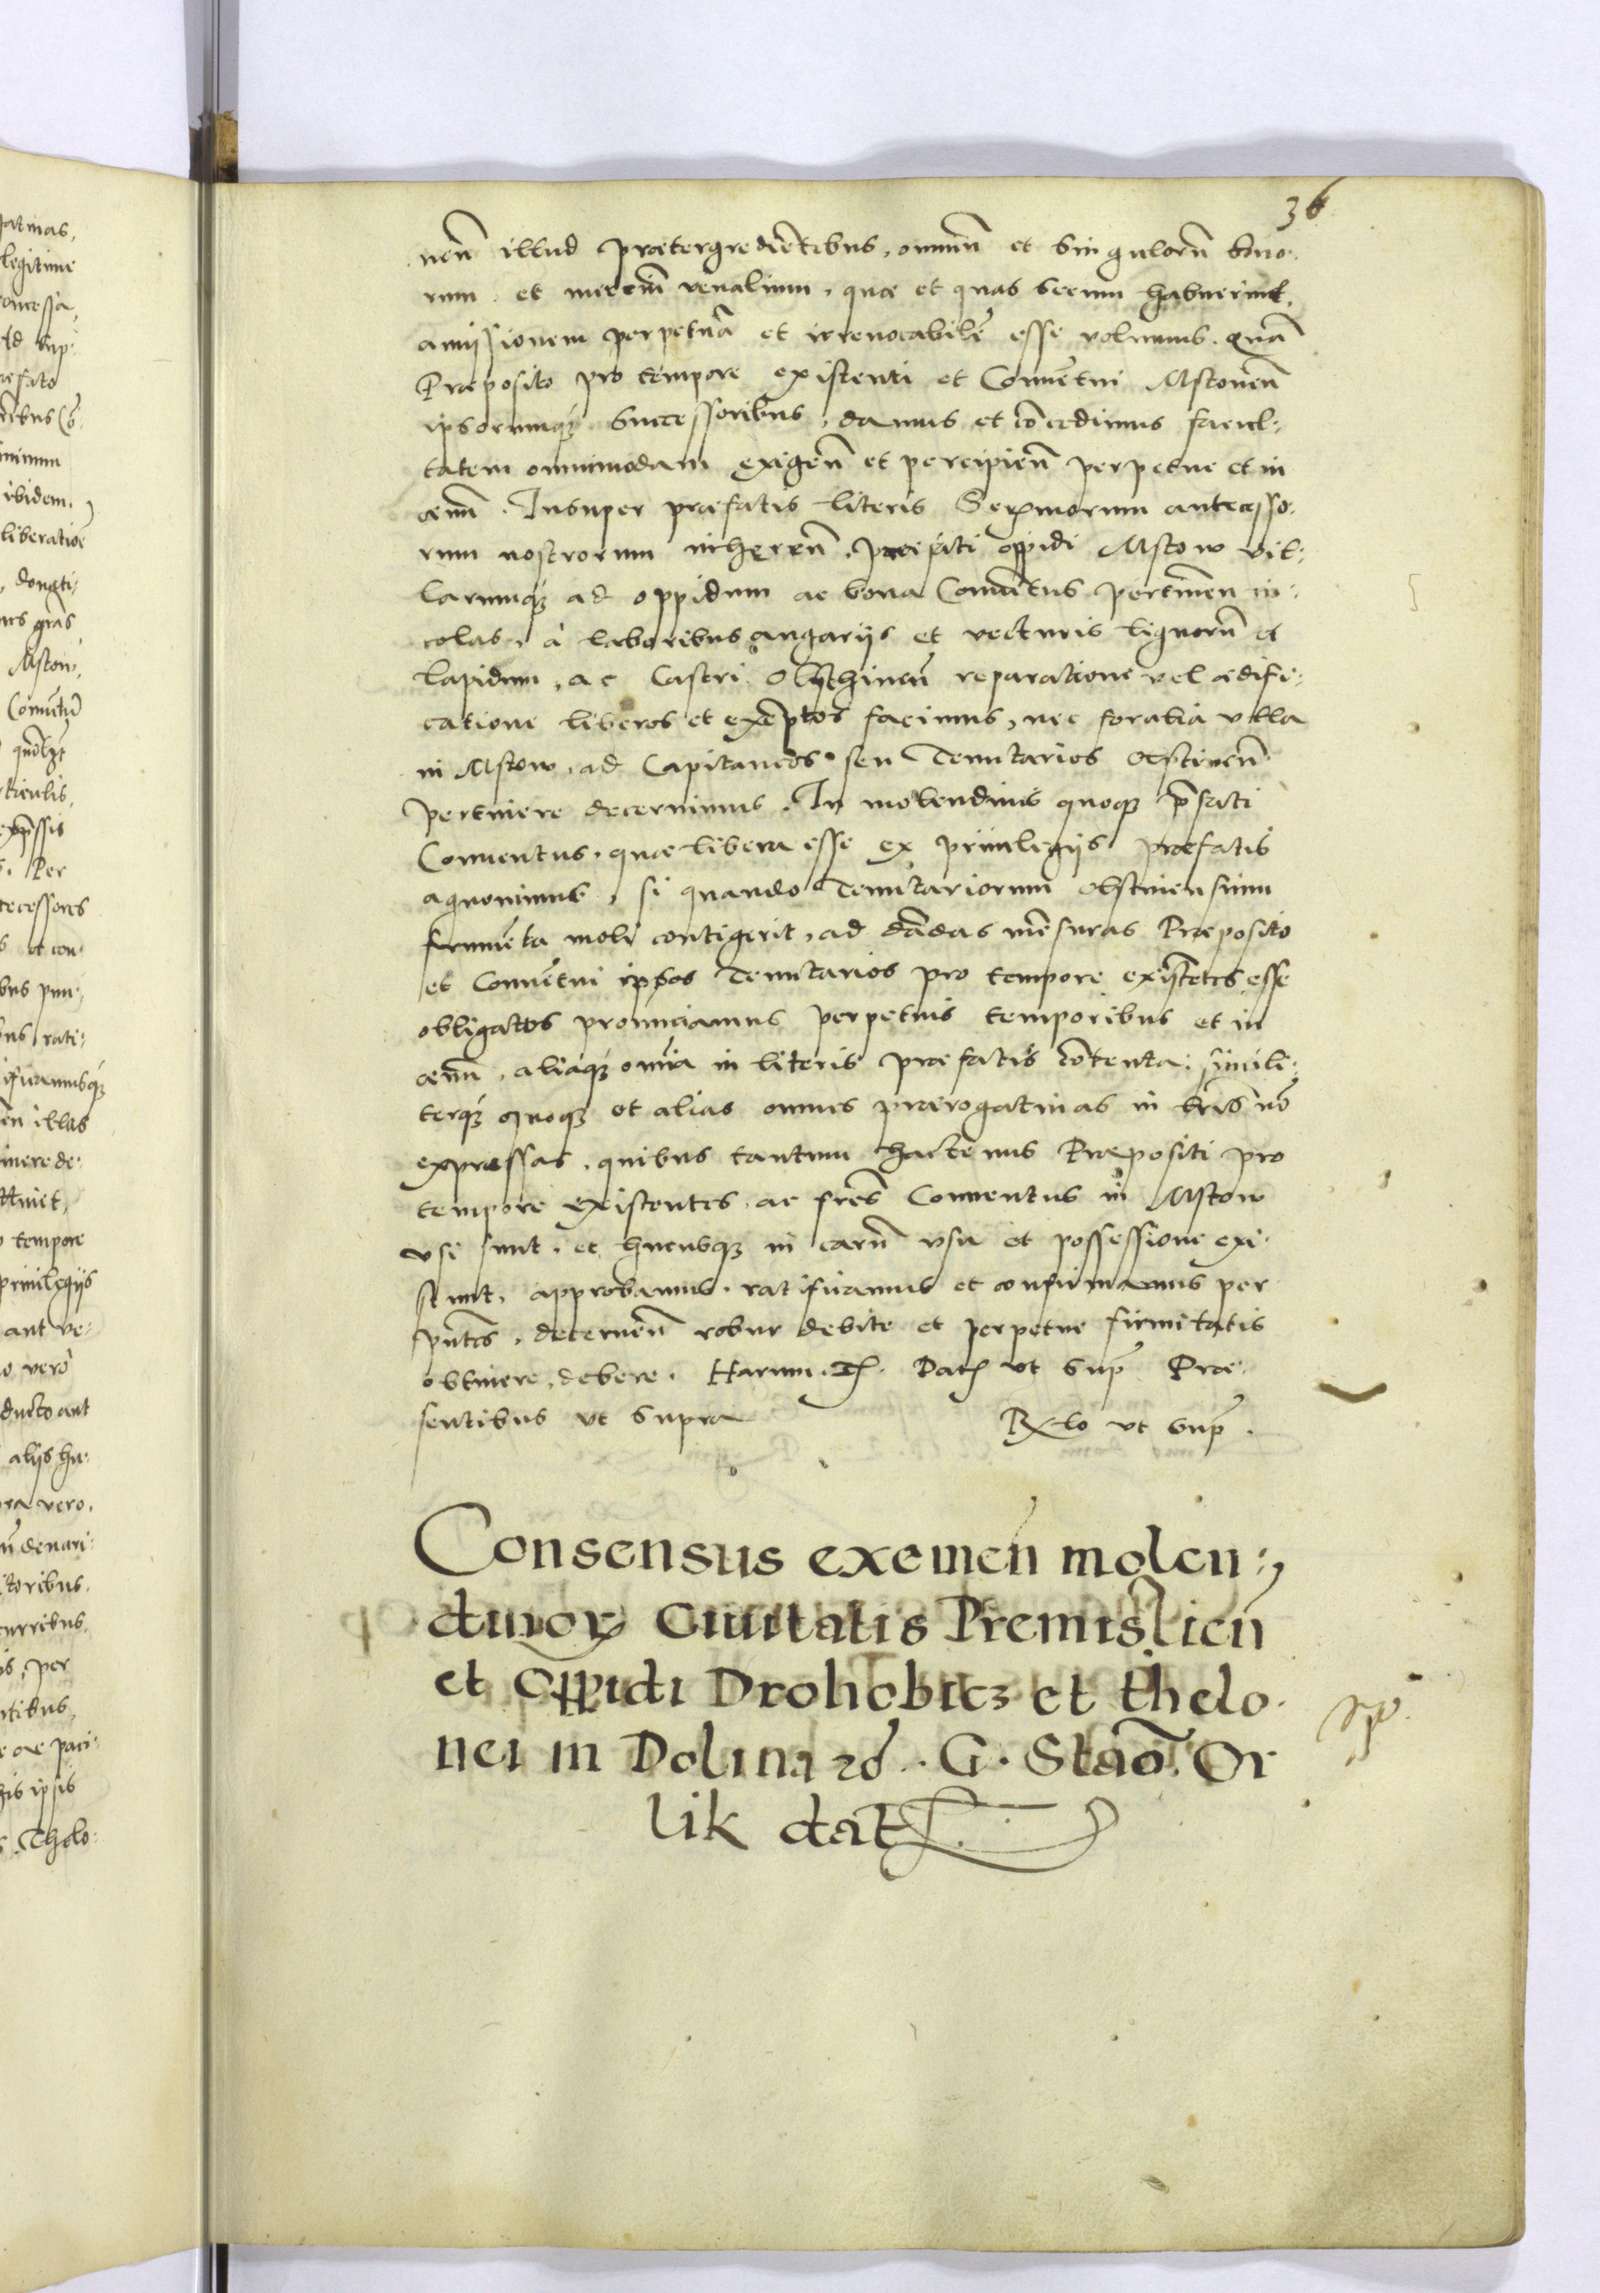 36
neñ illud prætergrediẽtibus, omniũ et singulorũ bono:
rum et merciũ venalium, quæ et quas secum habuerint,
amissionem perpetuã et irreuocabilẽ esse volumus. quã
Præposito pro tempore existenti et Conuẽtui Mstoueñ
ipsorumq; successoribus, damus et cõcedimus facul:
tatem omnimodam exigeñ et percipieñ perpetue et in
æuũ. Insuper præfatis literis Serᵐorum antecesso:
rum nostrorum inhereñ, præfati oppidi Mstow vil:
larumq; ad oppidum ac bona Conuẽtus pertineñ in:
colas, à laboribus angarijs et vecturis lignorũ et
lapidum, ac Castri Olschineñ reparatione vel ædifi:
catione liberos et exẽptos facimus, nec foralia vlla
in Mstow, ad Capitaneos seu Tenutarios Olstineñ
pertinere decernimus. In molendinis quoq; p̃fati
Conuentus, quæ libera esse ex priuilegijs præfatis
agnouimus, si quando Tenutariorum Olstinensium
frumẽta moli contigerit, ad dãdas mẽsuras Præposito
et Conuẽtui ipsos Tenutarios pro tempore existẽtes esse
obligatos pronunciamus perpetuis temporibus et in
æuũ, aliaq; om̃ia in literis præfatis cõtenta, simili:
terq; quoq; et alias omnes prærogatiuas in lr̃is nõ
expressas, quibus tantum hactenus Præpositi pro
tempore existentes, ac fr̃es Conuentus in Mstow
vsi sunt, et hucusq; in earũ vsu et possessione exi:
stunt, approbamus, ratificamus et confirmamus per
p̃ntes, decerneñ robur debite et perpetue firmitatis
obtinere debere. Harum. Dat̃ vt sup̃ Præ:
sentibus vt supra
Rx̃lo vt sup̃.
Consensus exemeñ molen:
dinoꝝ Ciuitatis Premislieñ
et Oppidi Drohobicz et thelo:
nei in Dolina . G. Stao. Or
lik dat